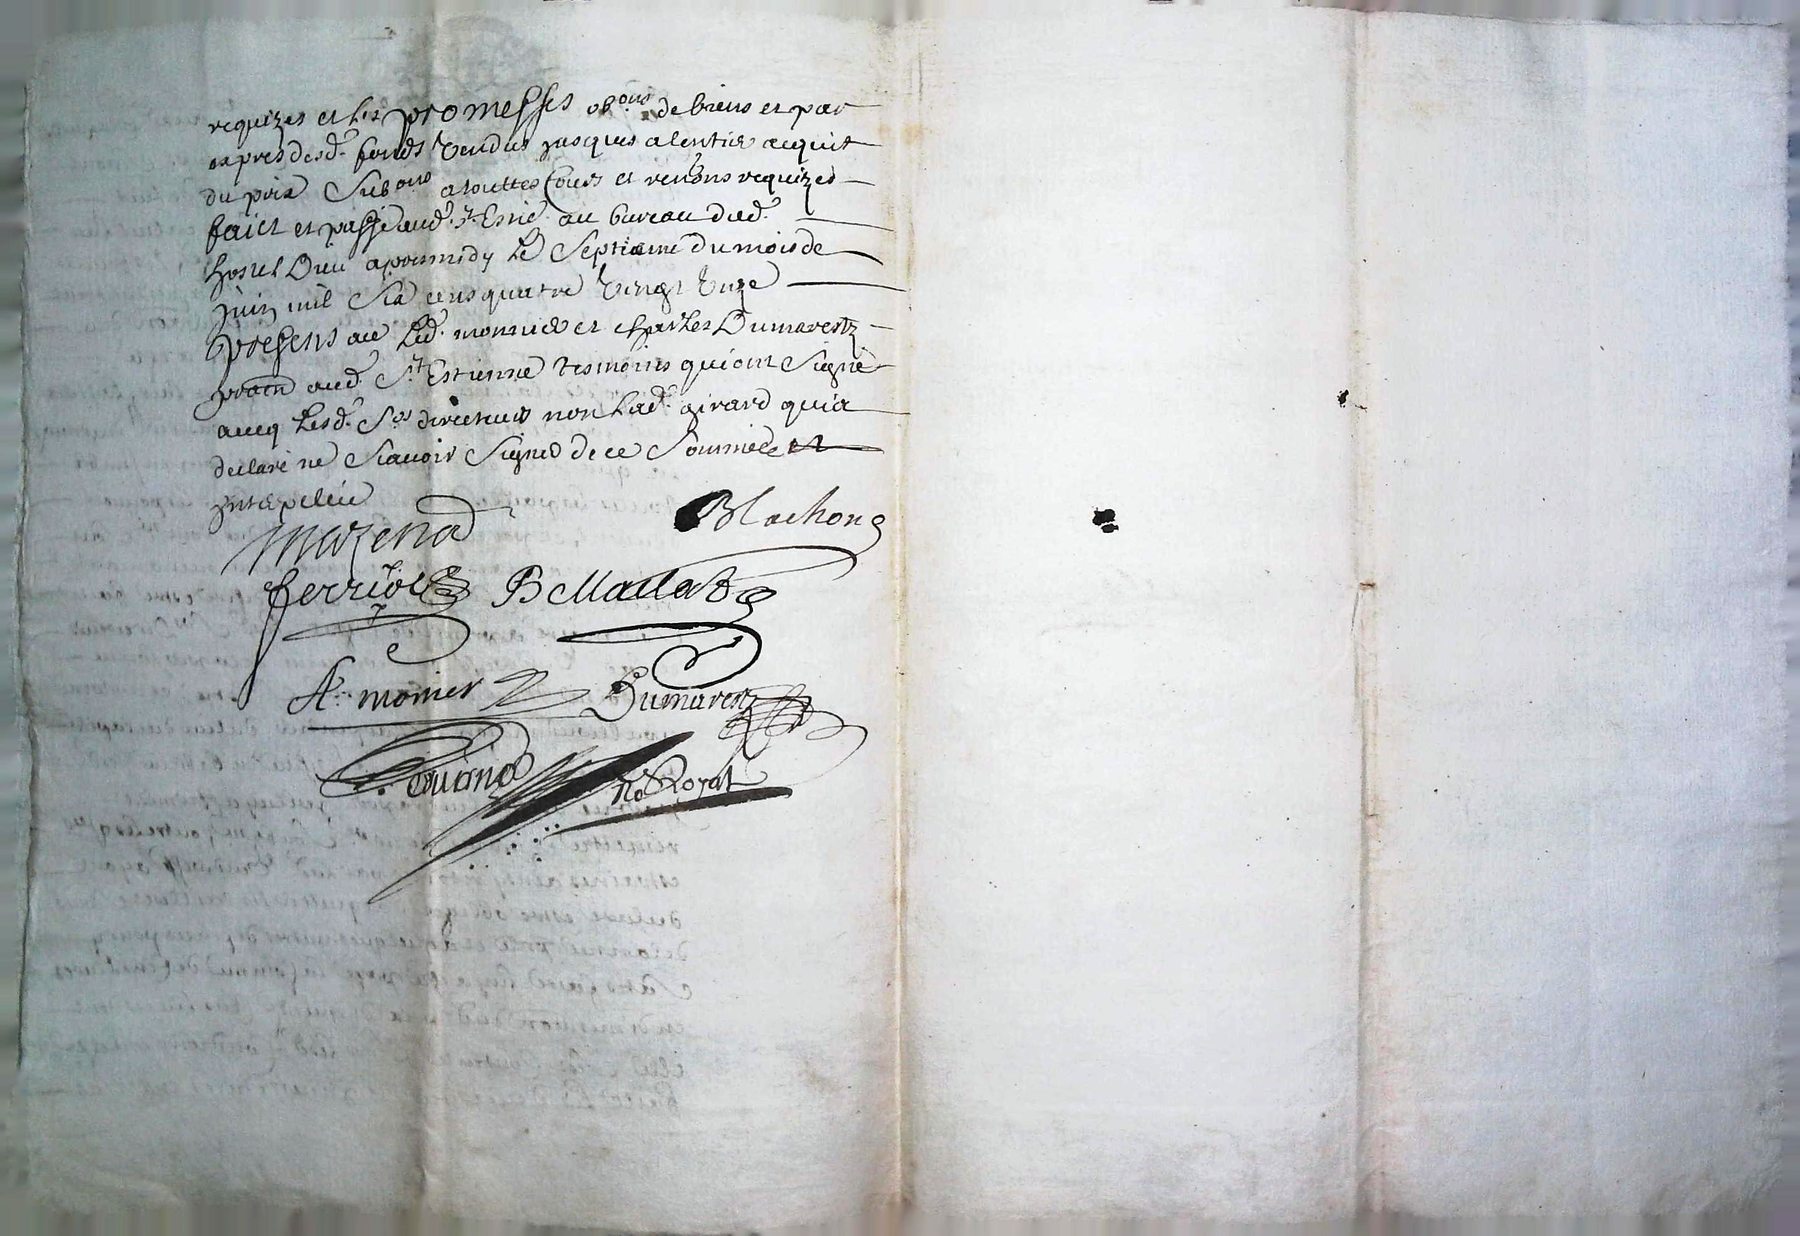 requizes et les promesses ob.ons de biens et par
expres desd. fonds vendus jusques a lentier acquit
du prix Sub.ons a touttes Cours et renons requizes
faict et passé aud. St. Estne. au bureau dud.
hostel Dieu apresmidy Le Septieme du mois de
juin mil Six cens quatre vingt unze
presens ace led. monnier et charles Dumarestz
aud. St. Estienne tesmoins qui ont Signé
avecq Lesd. Srs directeurs non Lad. girard qui a
declaré ne Scavoir Signer de ce Sommée et
interpellée
mazenod
Blachon
ferriol
Bellacla
A. monier
Dumarestz
No. Royal